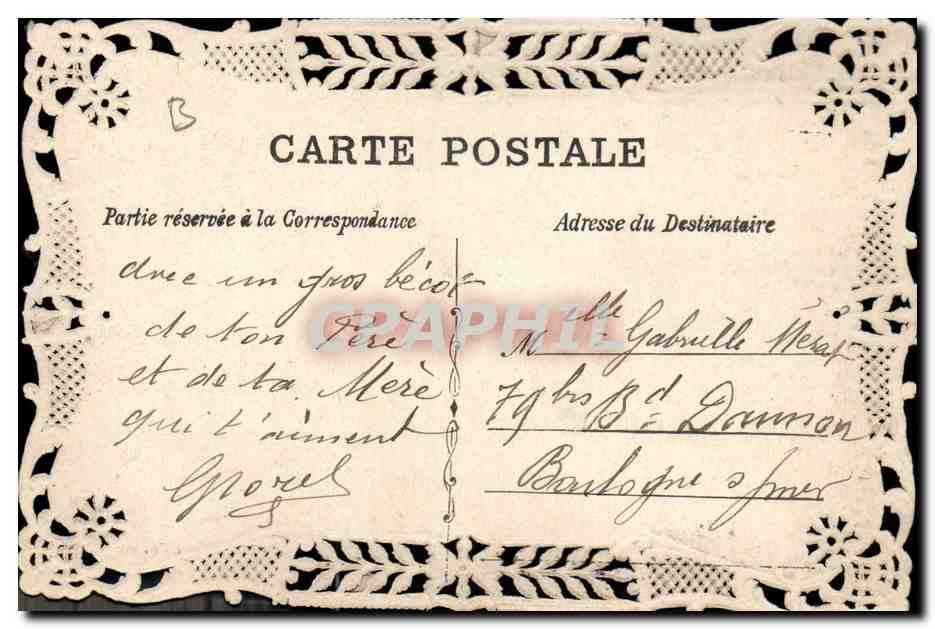 B
CARTE POSTALE
Partie réservée à la Correspondance
Adresse du Destinataire
avec un gros bécot
de ton Père
et de ta Mère
qui t'aiment
Melle Gabrielle
79 bis Bd Daunou
Boulogne s/mer
CPAPHIL